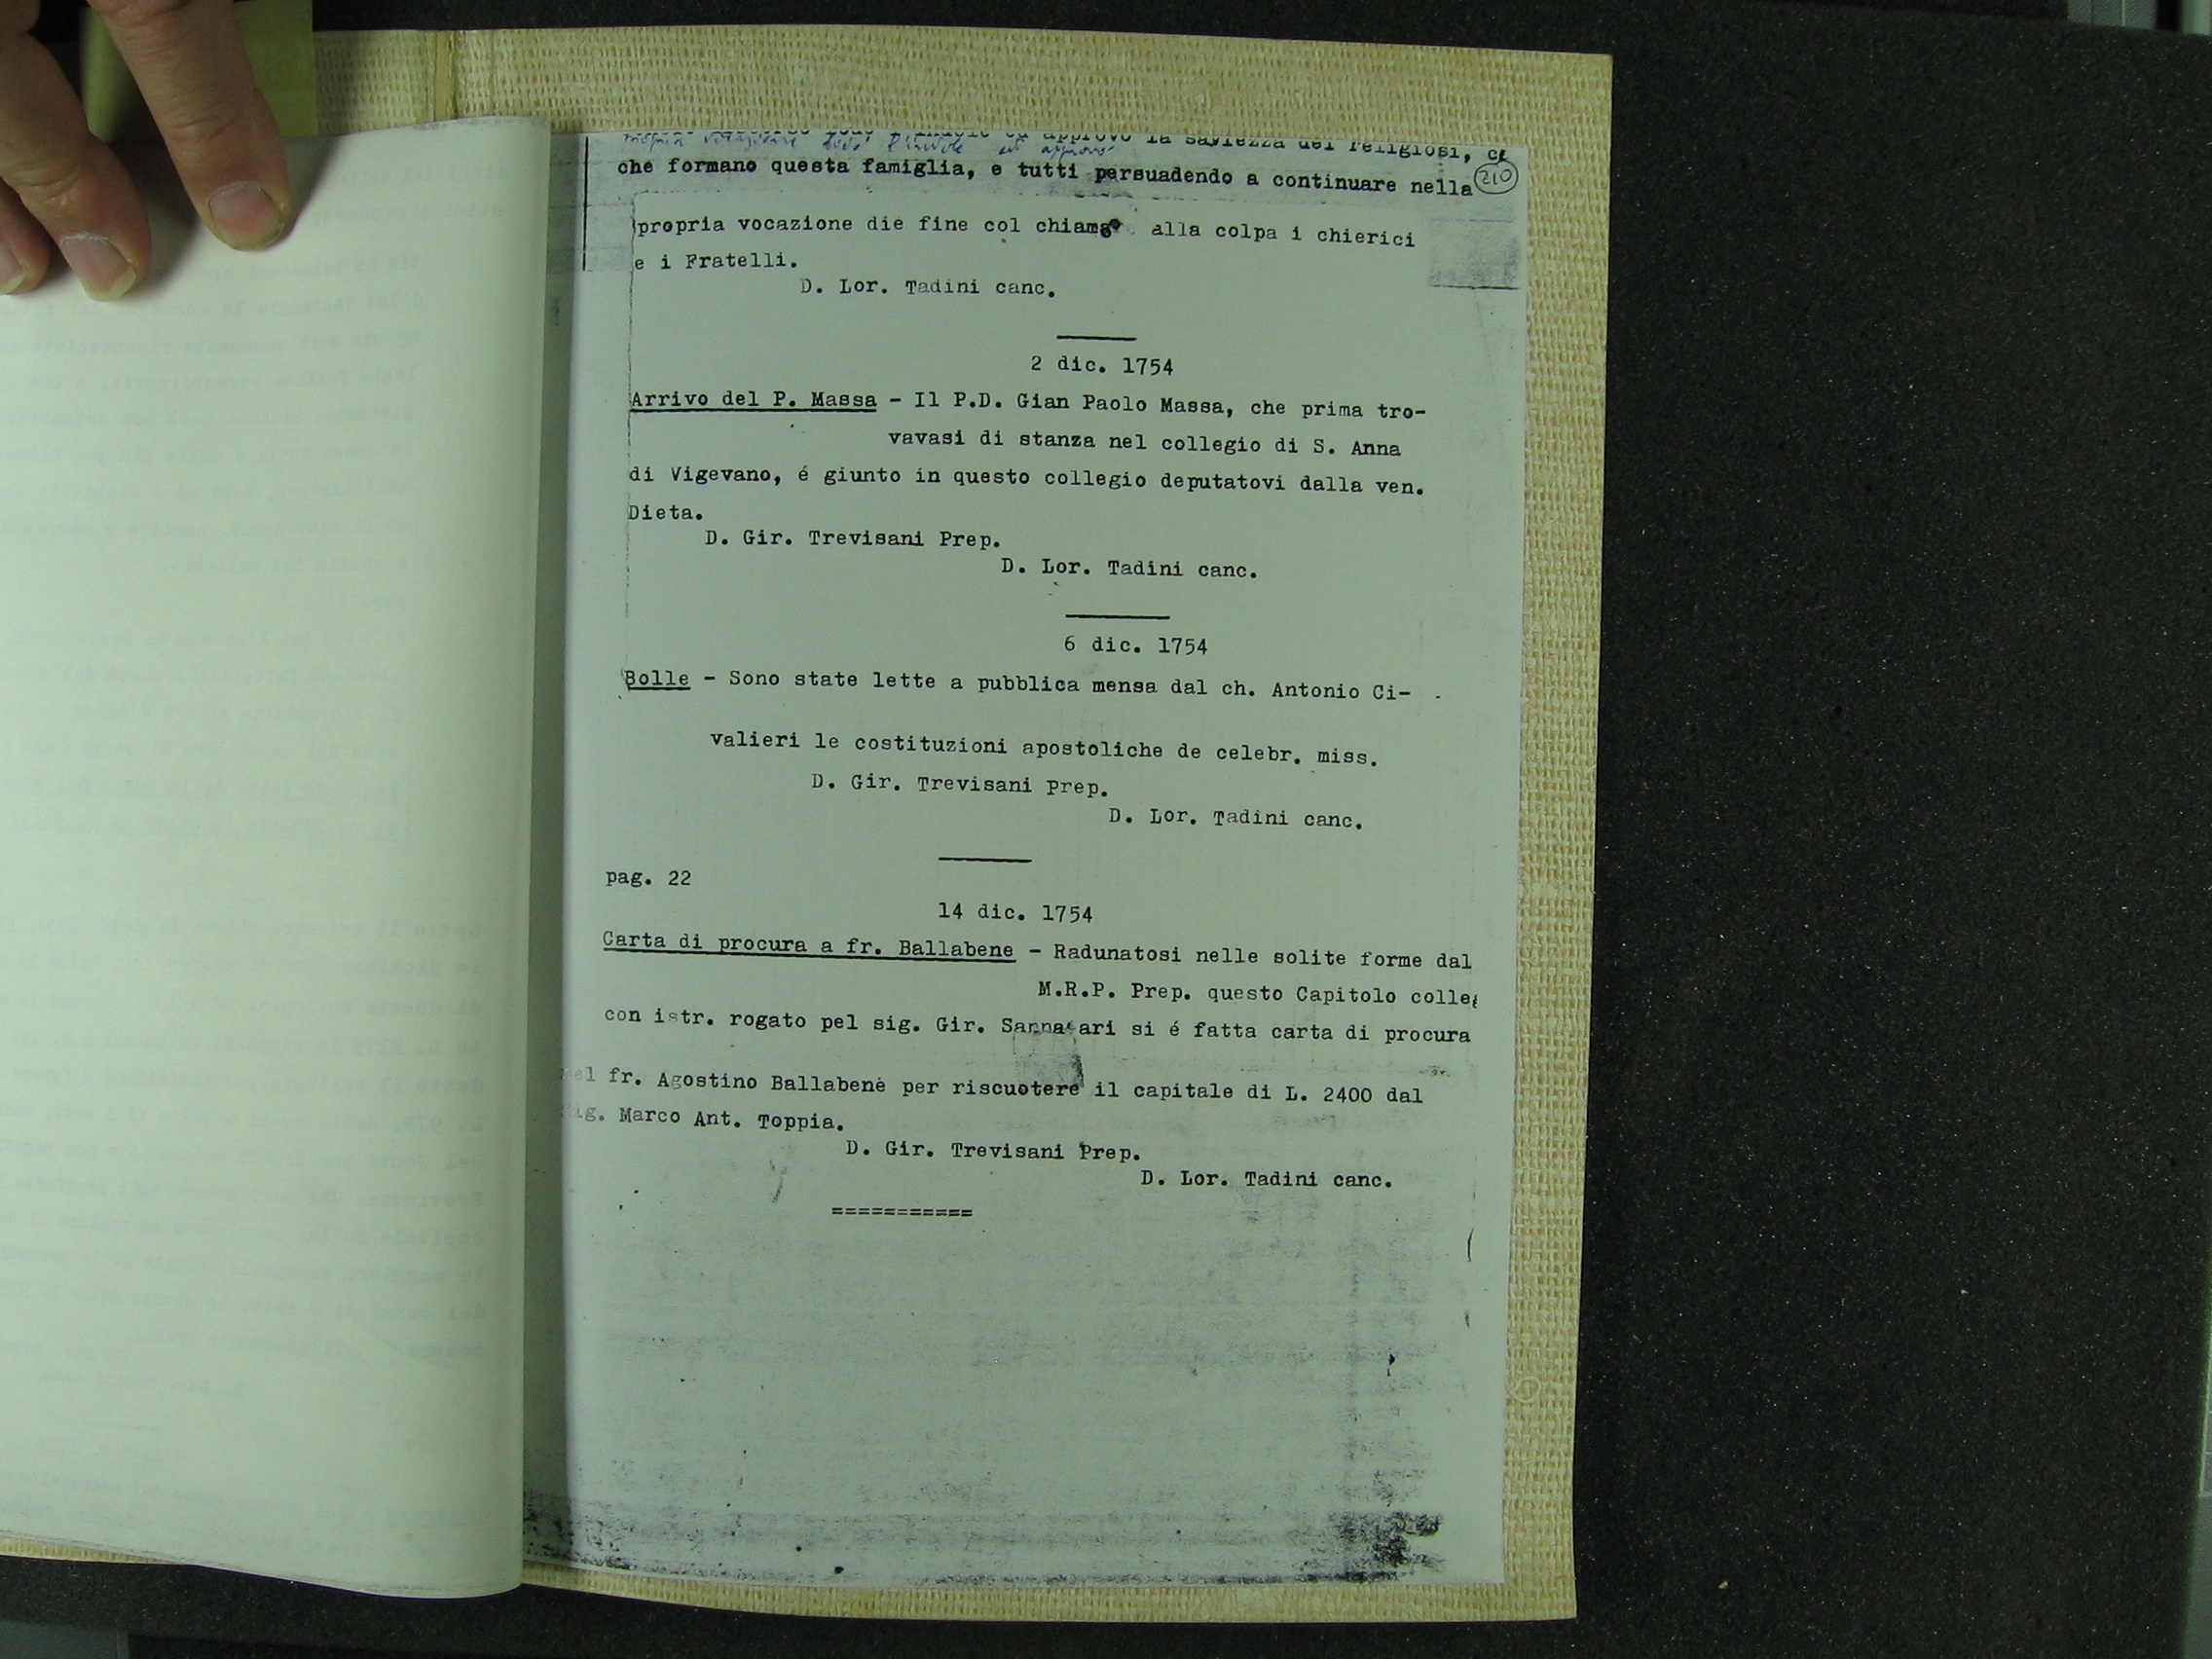 lodò l'indole ed approvò la saviezza dei religiosi,
lodò l'indole ed approvò
che formano questa famiglia, e tutti persuadendo a continuare nella
210
propria vocazione die fine col chiamar alla colpa i chierici
e i Fratelli.
D. Lor. Tadini canc.
2 dic. 1754
Arrivo del P. Massa - Il P.D. Gian Paolo Massa, che prima tro-
vavasi di stanza nel collegio di S. Anna
di Vigevano, é giunto in questo collegio deputatovi dalla ven.
Dieta.
D. Gir. Trevisani Prep.
D. Lor. Tadini canc.
6 dic. 1754
Bolle - Sono state lette a pubblica mensa dal ch. Antonio Ci-
valieri le costituzioni apostoliche de celebr. miss.
D. Gir. Trevisani Prep.
D. Lor. Tadini canc.
pag. 22
14 dic. 1754
Carta di procura a fr. Ballabene - Radunatosi nelle solite forme dal
M.R.P. Prep. questo Capitolo colleg
con istr. rogato pel sig. Gir. Sannazari si é fatta carta di procura
nel fr. Agostino Ballabene per riscuotere il capitale di L. 2400 dal
sig. Marco Ant. Toppia.
D. Gir. Trevisani Prep.
D. Lor. Tadini canc.
===========